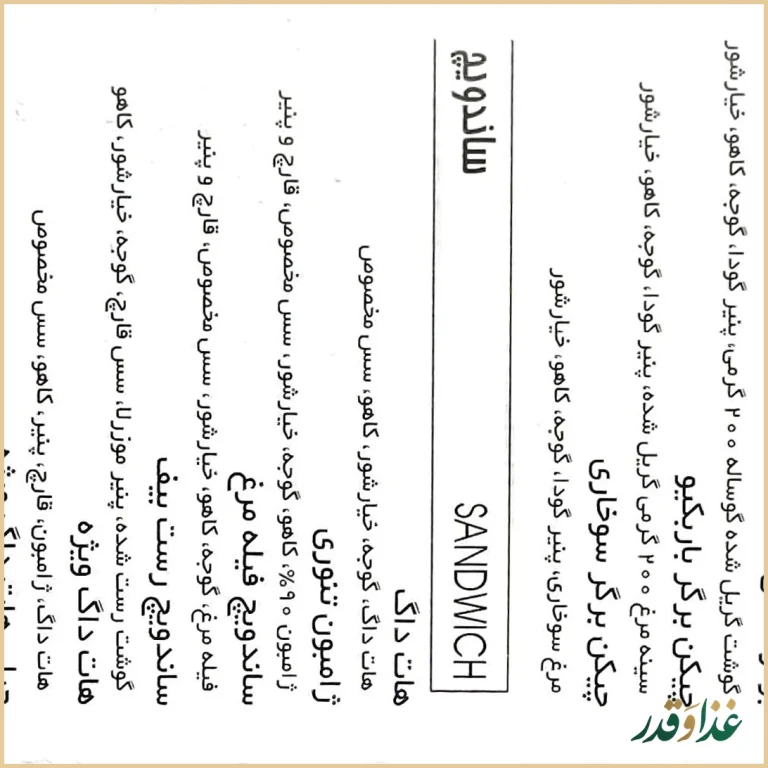 گوشت گریل شده گوساله ۲۰۰ گرمی، پنیر گودا، گوجه، کاهو، خیارشور
چیکن برگر باربکیو
سینه مرغ ۲۰۰ گرمی گریل شده، پنیر گودا، گوجه، کاهو، خیارشور
چیکن برگر سوخاری
مرغ سوخاری، پنیر گودا، گوجه، کاهو، خیارشور
SANDWICH ساندویچ
هات داگ
هات داگ، گوجه، خیارشور، کاهو، سس مخصوص
ژامبون تنوری
ژامبون ۹۰٪، کاهو، گوجه، خیارشور، سس مخصوص، قارچ و پنیر
ساندویچ فیله مرغ
فیله مرغ، گوجه، کاهو، خیارشور، سس مخصوص، قارچ و پنیر
ساندویچ رست بیف
گوشت رست شده، پنیر موزرلا، سس قارچ، گوجه، خیارشور، کاهو
هات داگ ویژه
هات داگ، ژامبون، قارچ، پنیر، کاهو، سس مخصوص
غذا و قدر